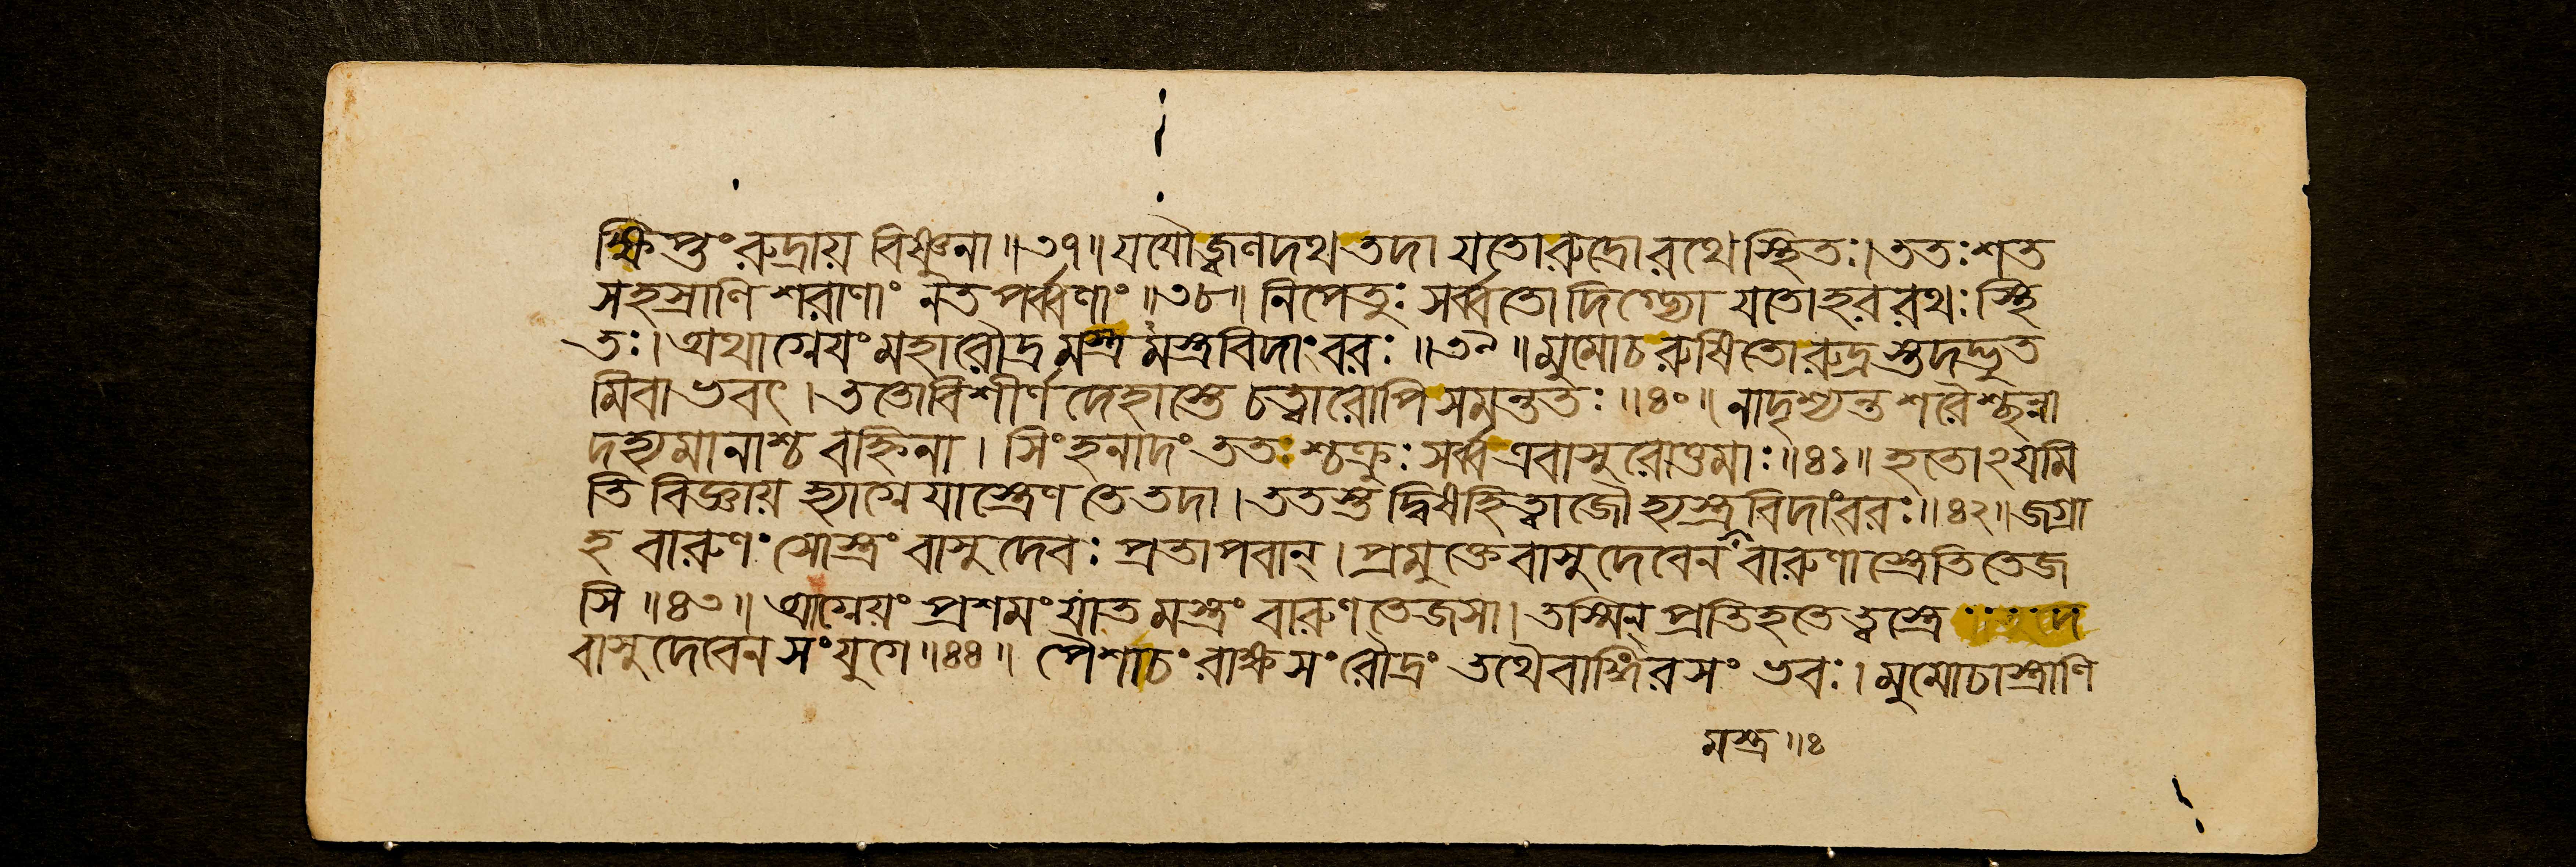 ক্ষিপ্তং রুদ্রায় বিষ্ণুনা ॥৩৭॥ যযৌ জ্বলদথ তদা যতো রুদ্রো রথে স্থিতঃ। ততঃ শত
সহস্রাণি শরাণাং নতপর্ব্বণাং ॥৩৮॥ নিপেতুঃ সর্ব্বতো দিগ্ভ্যো যতো হররথঃ স্থি
তঃ। অথাগ্নেয়ং মহারৌদ্রমস্ত্রমস্ত্রবিদাং বরঃ ॥৩৯॥ মুমোচ রুষিতো রুদ্রস্তদদ্ভুত
মিবাভবৎ। ততো বিশীর্ণদেহাস্তে চত্বারোপি সমন্ততঃ ॥৪০॥ নাদৃশ্যন্ত শরৈশ্ছন্না
দহ্যমানাশ্চ বহ্নিনা। সিংহনাদং ততঃ শ্চক্রুঃ সর্ব্ব এবাসুরোত্তমাঃ ॥৪১॥ হতোঽযমি
তি বিজ্ঞায় হ্যাগ্নেযাস্ত্রেণ তে তদা। ততস্ত দ্বিষহিত্বাজৌ হ্যস্ত্রবিদাংবরঃ ॥৪২॥ জগ্রা
হ বারুণং সোস্ত্রং বাসুদেবঃ প্রতাপবান্। প্রমুক্তে বাসুদেবেন বারুণাস্ত্রেতিতেজ
সি ॥৪৩॥ আগ্নেয়ং প্রশমং যাতমস্ত্রং বারুণতেজসা। তস্মিন্ প্রতিহতে ত্বস্ত্রে
বাসুদেবেন সংযুগে ॥৪৪॥ পৈশাচং রাক্ষসং রৌদ্রং তথৈবাঙ্গিরসং ভবঃ। মুমোচাস্ত্রাণি
মস্ত্র ॥ঃ